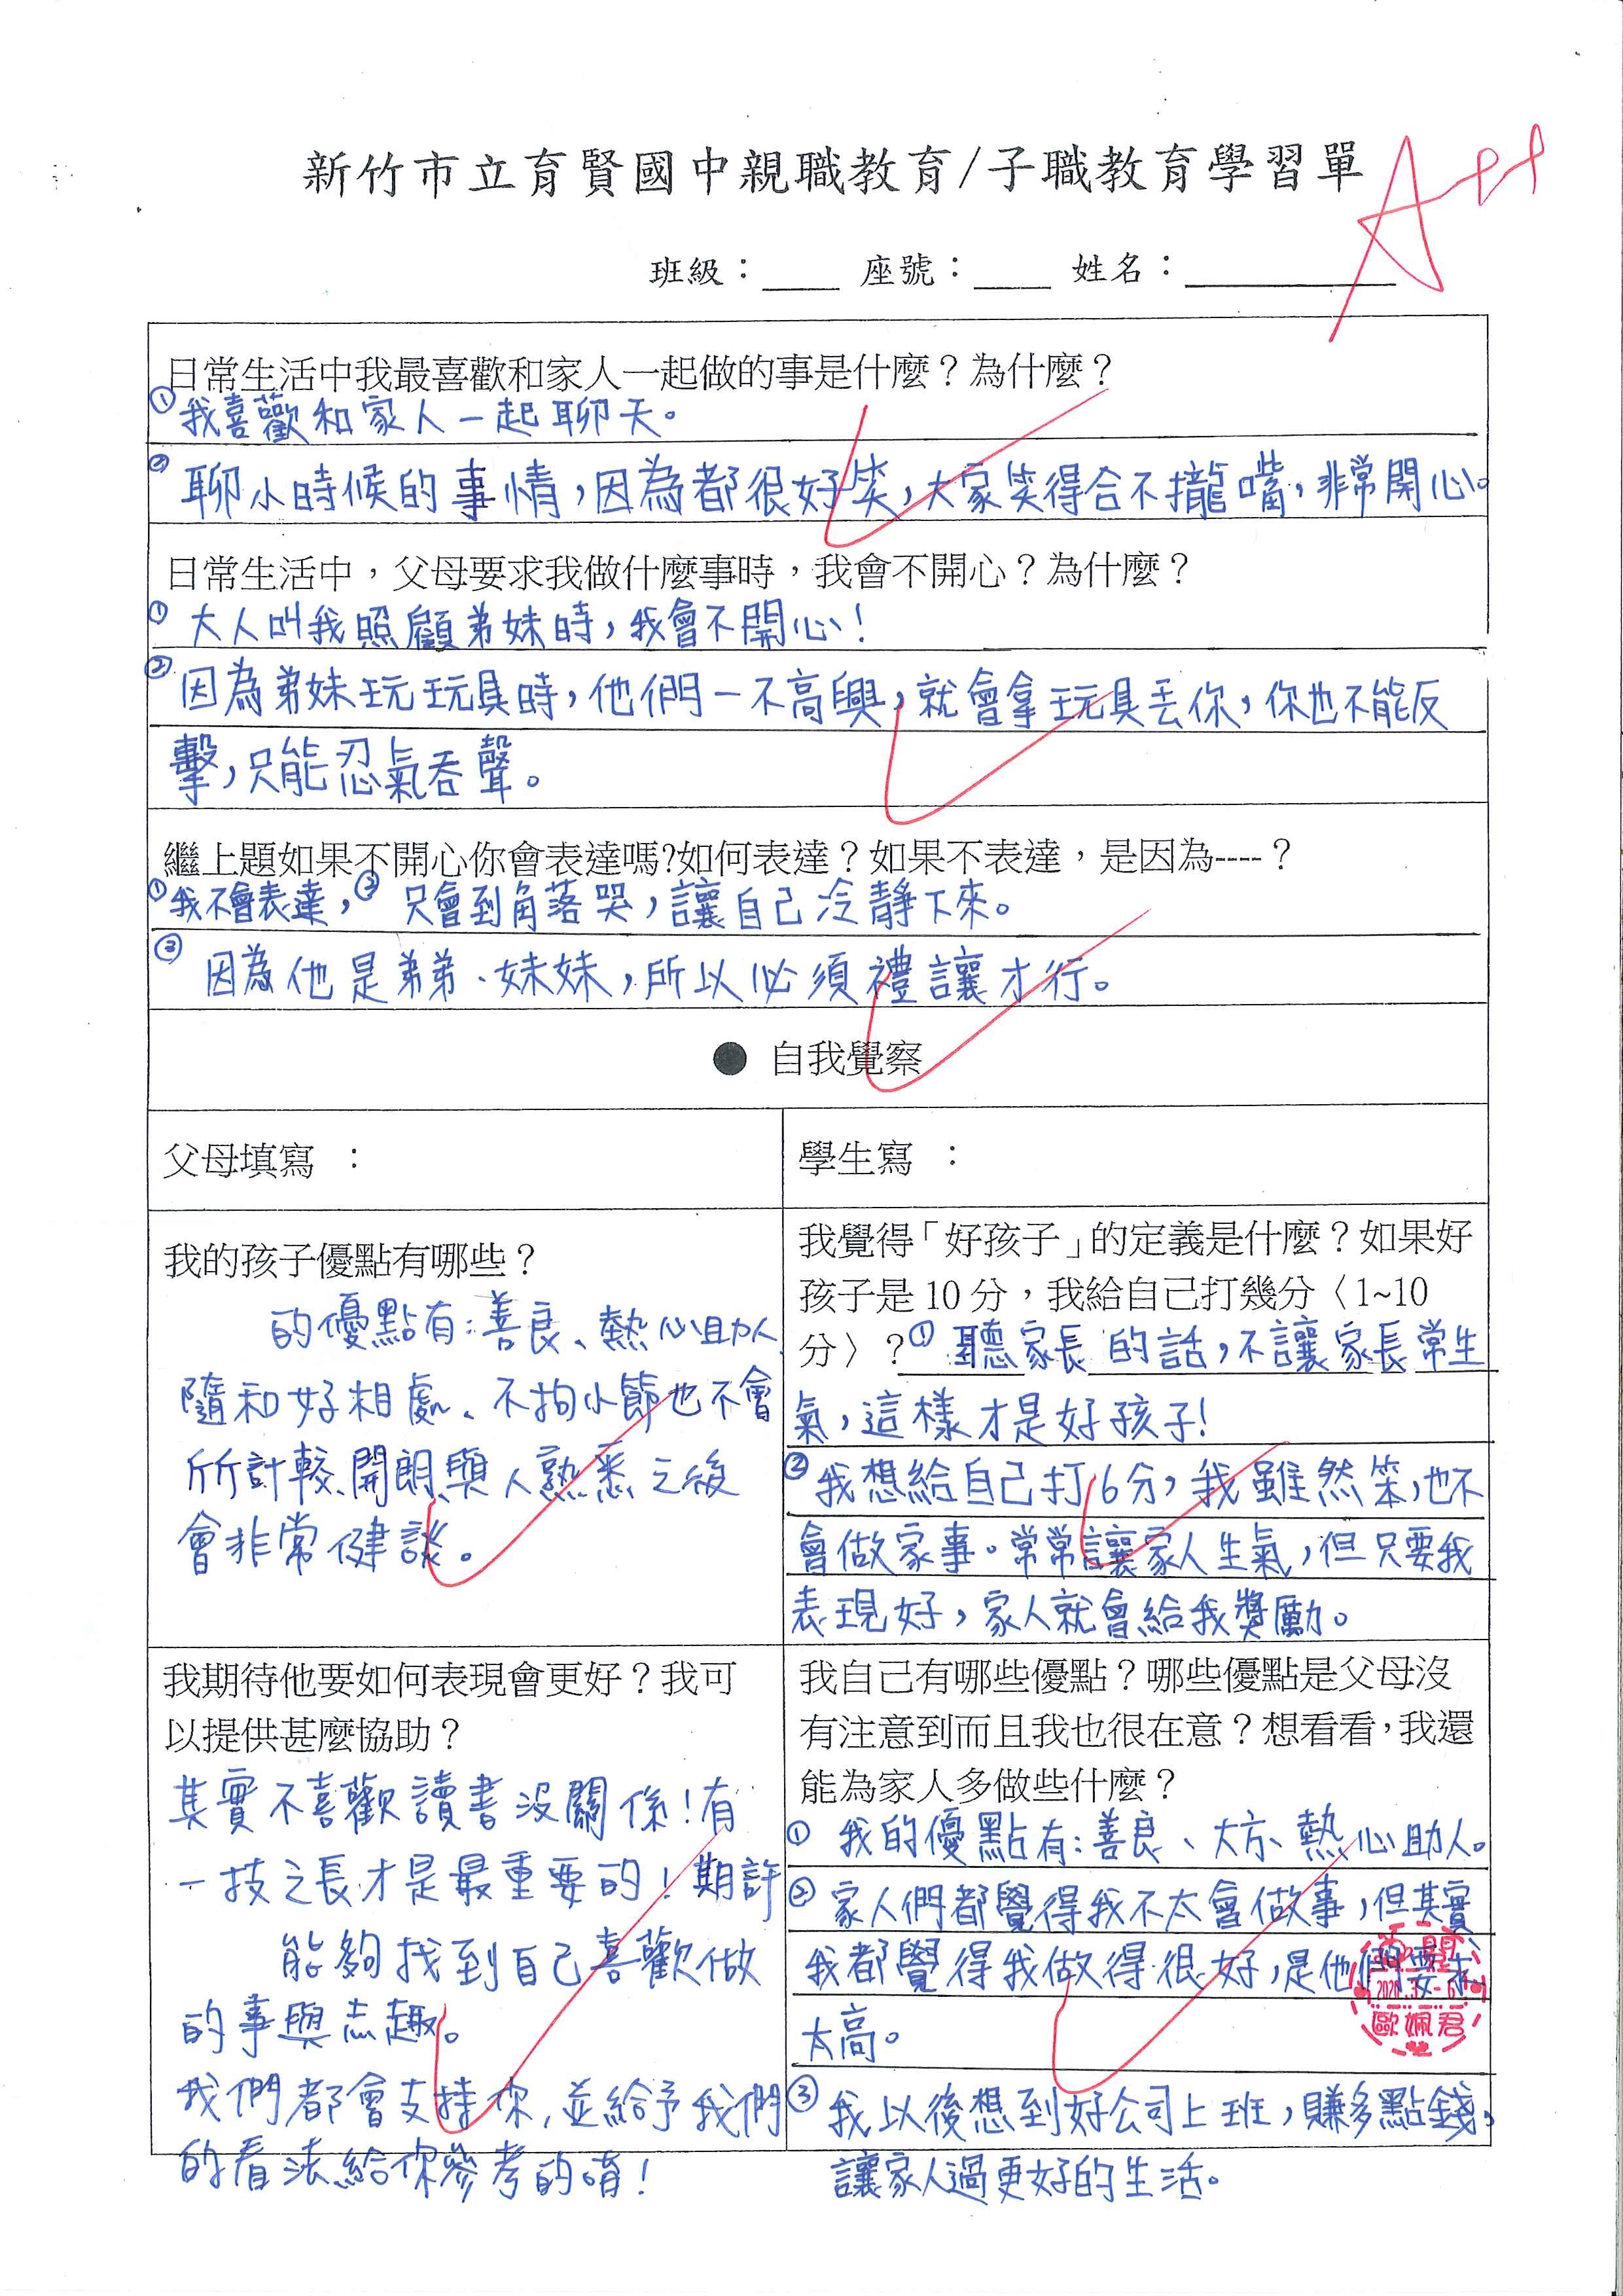 新竹市立育賢國中親職教育/子職教育學習單
A++
班級：____ 座號：____ 姓名：____________
日常生活中我最喜歡和家人一起做的事是什麼？為什麼？
①我喜歡和家人一起聊天。
②聊小時候的事情，因為都很好笑，大家笑得合不攏嘴，非常開心。
日常生活中，父母要求我做什麼事時，我會不開心？為什麼？
①大人叫我照顧弟妹時，我會不開心！
②因為弟妹玩玩具時，他們一不高興，就會拿玩具丟你，你也不能反
擊，只能忍氣吞聲。
繼上題如果不開心你會表達嗎?如何表達？如果不表達，是因為----？
①我不會表達，②只會到角落哭，讓自己冷靜下來。
③因為他是弟弟、妹妹，所以必須禮讓才行。
● 自我覺察
父母填寫 ：
學生寫 ：
我的孩子優點有哪些？
的優點有：善良、熱心助人、
隨和好相處、不拘小節也不會
所計較、開朗、與人熟悉之後
會非常健談。
我覺得「好孩子」的定義是什麼？如果好
孩子是 10 分，我給自己打幾分〈1~10
分〉？①聽家長的話，不讓家長常生
氣，這樣才是好孩子！
②我想給自己打6分，我雖然笨，也不
會做家事。常常讓家人生氣，但只要我
表現好，家人就會給我獎勵。
我期待他要如何表現會更好？我可
以提供甚麼協助？
其實不喜歡讀書沒關係！有
一技之長才是最重要的！期許
能夠找到自己喜歡做
的事與志趣。
我們都會支持你，並給予我們
的看法給你參考的唷！
我自己有哪些優點？哪些優點是父母沒
有注意到而且我也很在意？想看看，我還
能為家人多做些什麼？
①我的優點有：善良、大方、熱心助人。
②家人們都覺得我不太會做事，但其實
我都覺得我做得很好，是他們要求
太高。
③我以後想到好公司上班，賺多點錢，
讓家人過更好的生活。
歐姵君